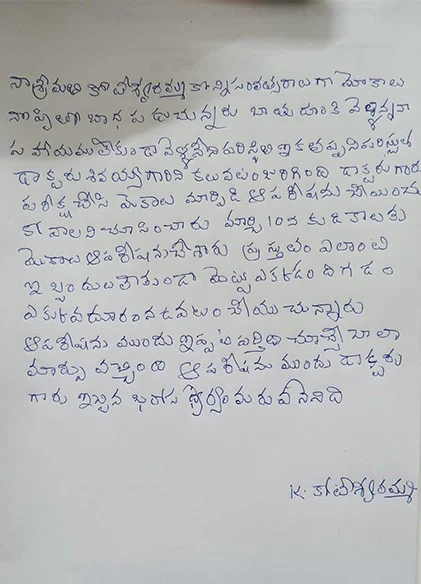 నా శ్రీమతి కోటేశ్వరమ్మ కొన్ని సంవత్సరాలుగా మోకాలు
నొప్పితో బాధ పడుచున్నరు బాయ దూరంకి వెళ్ళన్ననా
సహాయము లేకుండా వెళ్ళలేని పరిస్థితి ఇక తప్పని పరిస్థితి
డాక్టరు శివయ్య గారిని కలవటం జరిగింది డాక్టరు గారు
పరీక్ష చేసి మోకాలు మార్పిడి ఆపరేషను చేయించు
కోవాలని సూచించారు మార్చి 10న కుడి కాలుకు
మోకాలు ఆపరేషను చేశారు ప్రస్తుతం ఎలాంటి
ఇబ్బందులు లేకుండా మెట్లు ఎక్కడం దిగడం
ఎక్కువ దూరం నడవటం చేయుచున్నారు
ఆపరేషను ముందు ఇప్పటి పరిస్థితి చూస్తే చాలా
మార్పు వచ్చింది ఆపరేషను ముందు డాక్టరు
గారు ఇచ్చిన భరోసా ధైర్యం మరువలేనిది
K. కోటేశ్వరమ్మ